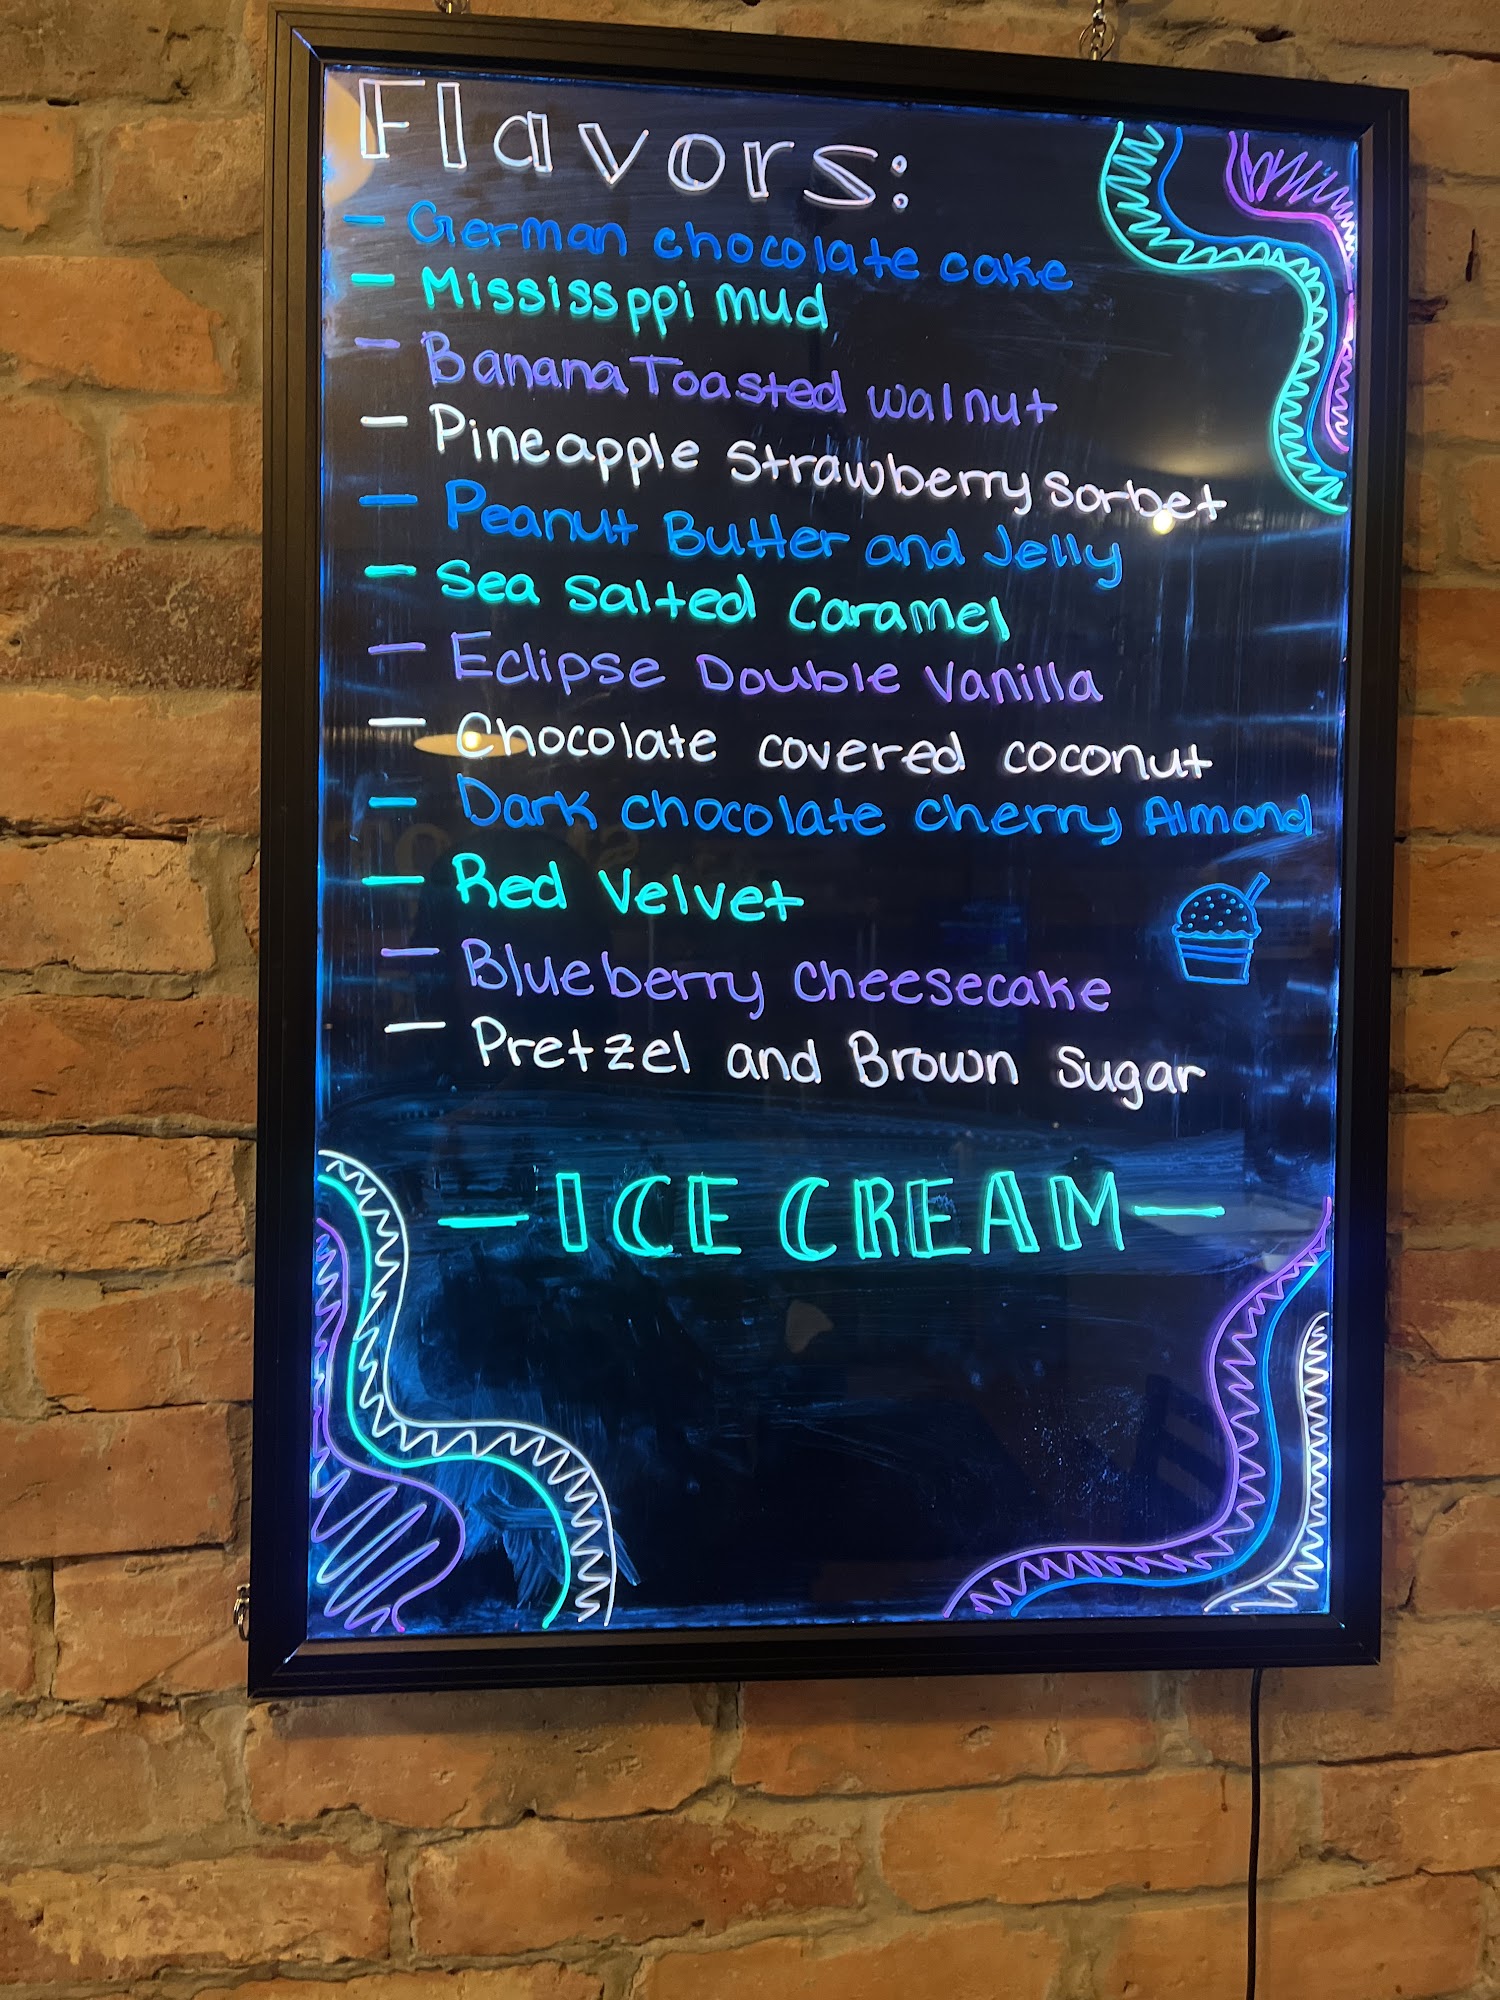 Flavors:
- German chocolate cake
- Mississppi mud
- Banana Toasted walnut
- Pineapple Strawberry Sorbet
- Peanut Butter and Jelly
- Sea Salted Caramel
- Eclipse Double Vanilla
- Chocolate covered coconut
- Dark chocolate cherry Almond
- Red Velvet
- Blueberry Cheesecake
- Pretzel and Brown Sugar
- ICE CREAM -